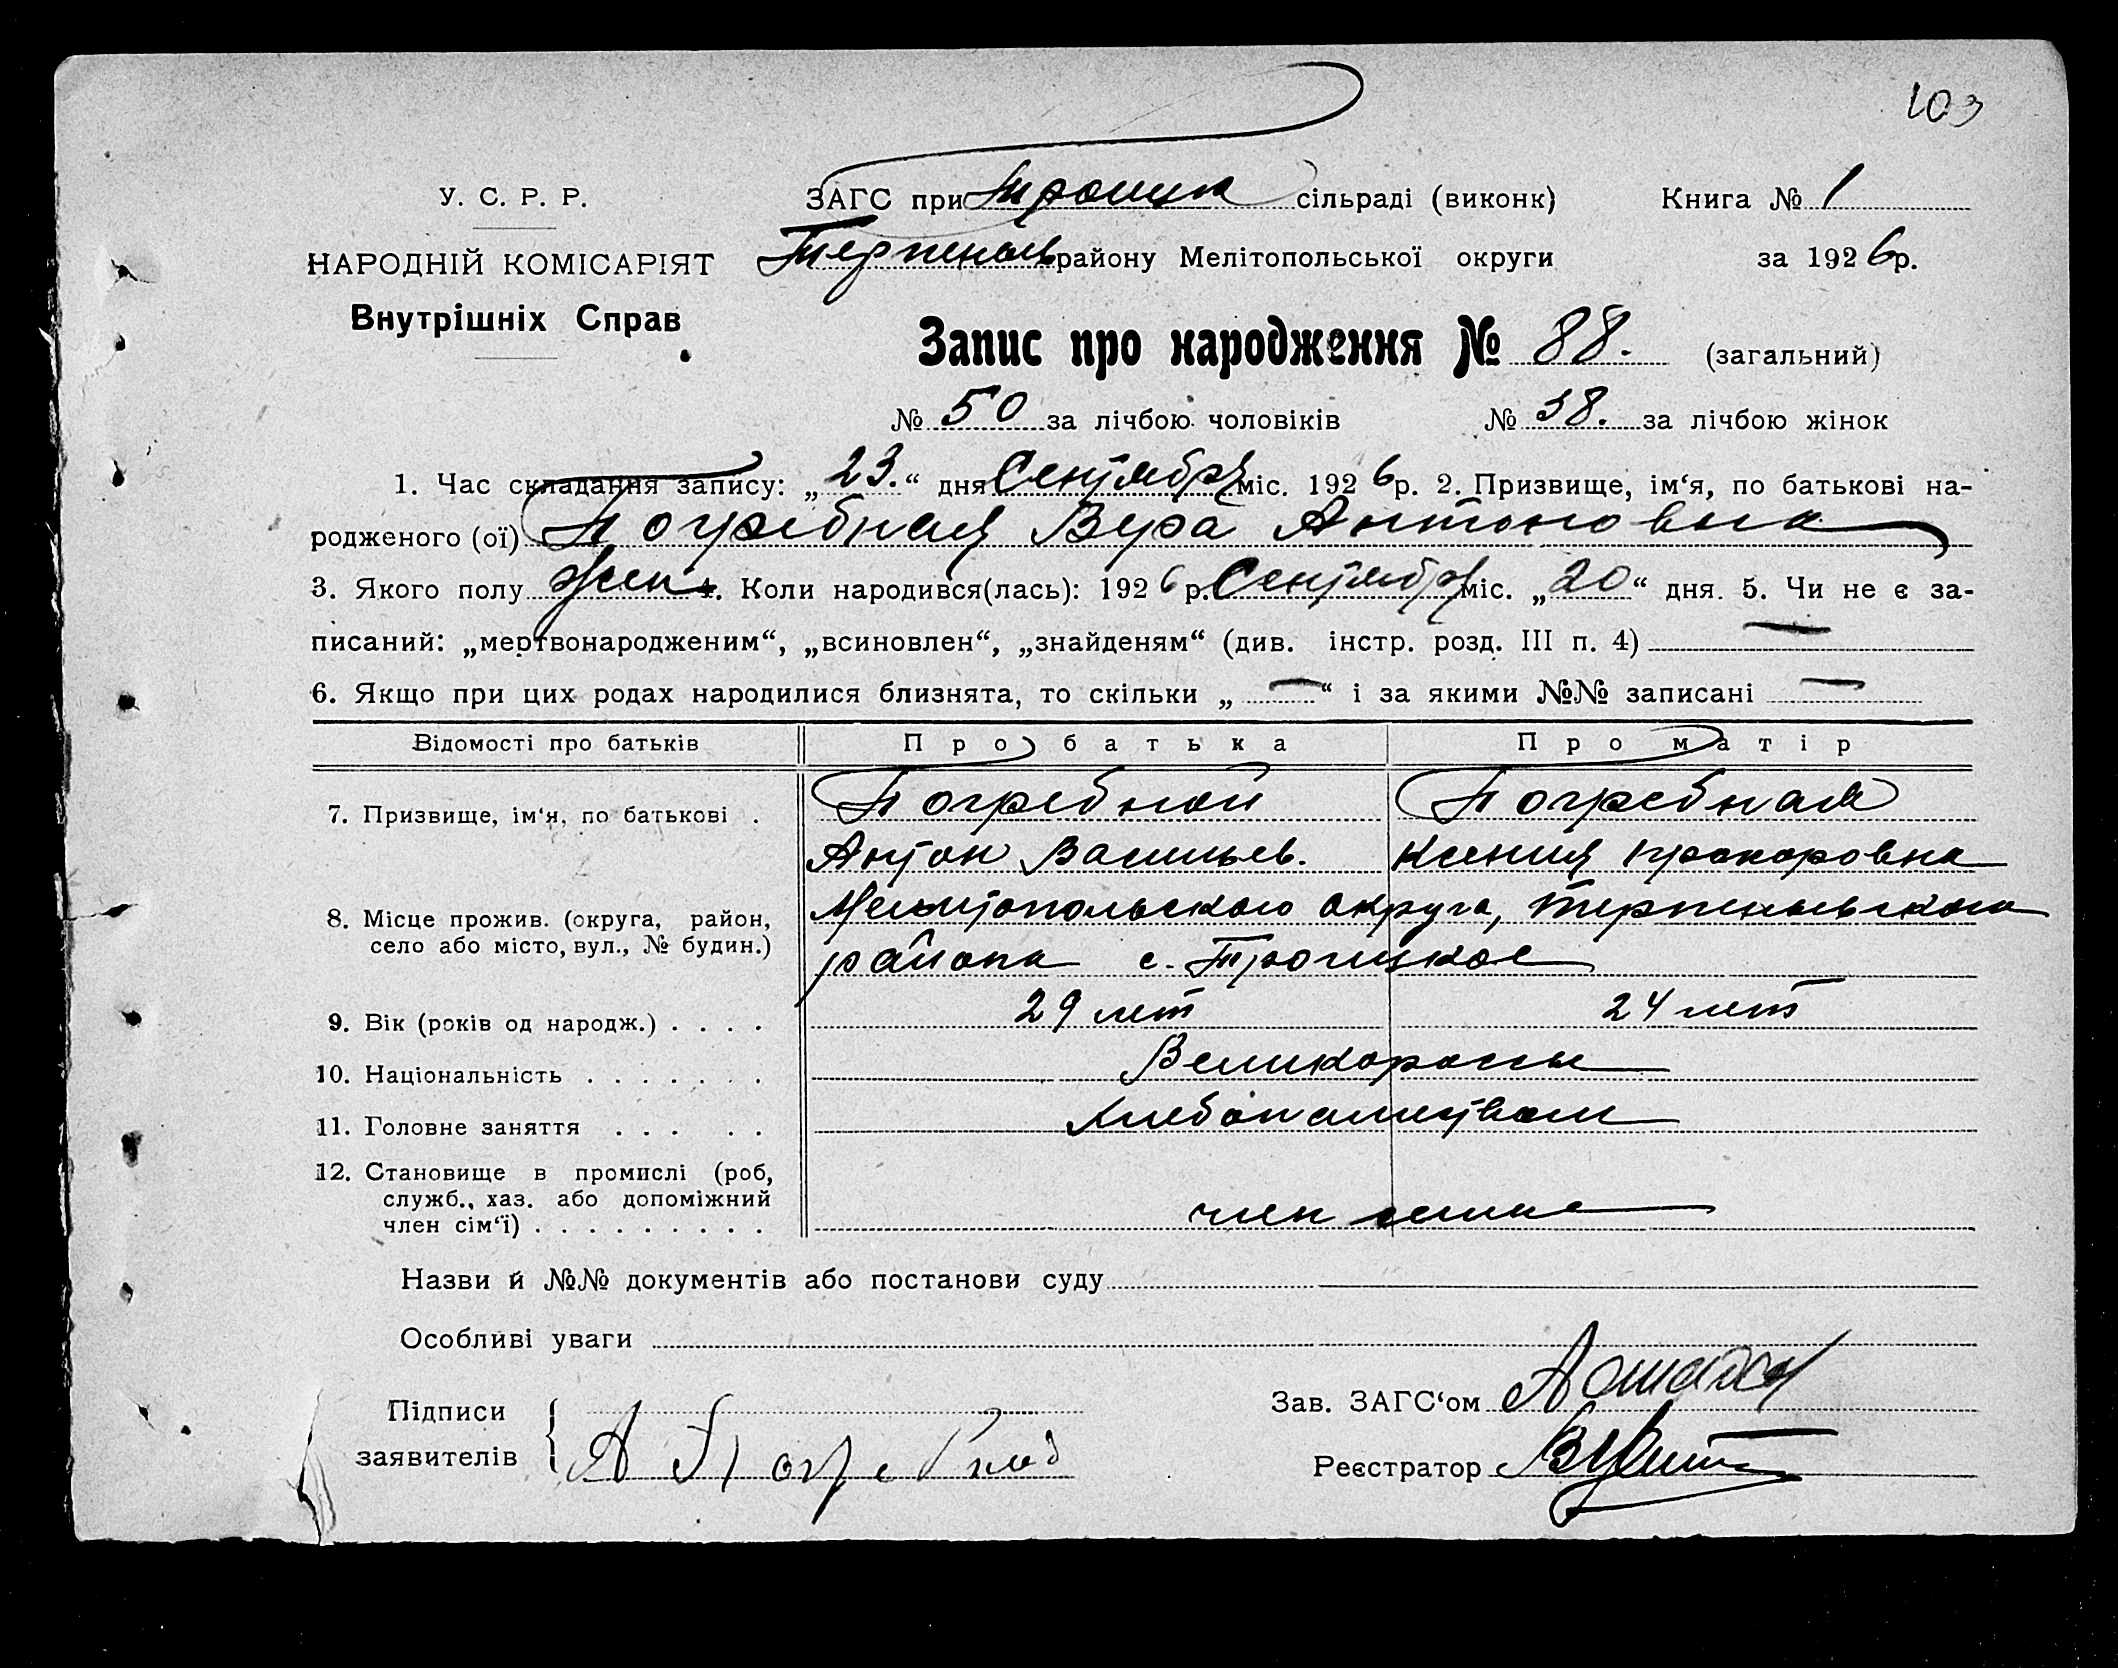 103
У. С. Р. Р.
ЗАГС при Троицк сільраді (виконк) Книга № 1
НАРОДНІЙ КОМІСАРІЯТ
Терпеньев району Мелітопольської округи за 1926 р.
Внутрішніх Справ
Запис про народження № 88. (загальний)
№ 50 за лічбою чоловіків № 38. за лічбою жінок
1. Час складання запису: „23.“ дня Сентября міс. 1926 р. 2. Призвище, ім‘я, по батькові на-
родженого (ої) Погребная Вера Антоновна
3. Якого полу жен 4. Коли народився(лась): 1926 р. Сентября міс. „20“ дня. 5. Чи не є за-
писаний: „мертвонародженим“, „всиновлен“, „знайденям“ (див. інстр. розд. III п. 4) —
6. Якщо при цих родах народилися близнята, то скільки „—“ і за якими №№ записані —
Відомості про батьків Про батька Про матір
7. Призвище, ім‘я, по батькові . Погребной Погребная
Антон Васильев. Ксения Прохоровна
8. Місце прожив. (округа, район, Мелитопольского округа, Терпеньевского
село або місто, вул., № будин.) района с. Троицкое
9. Вік (років од народж.) . . . . 29 лет 24 лет
10. Національність . . . . . . . Великороссы
11. Головне заняття . . . . . Хлебопашеством
12. Становище в промислі (роб,
служб., хаз. або допоміжний
член сім‘ї) . . . . . . . . . член семьи
Назви й №№ документів або постанови суду
Особливі уваги
Підписи
Зав. ЗАГС‘ом
заявителів А Погребной
Реєстратор